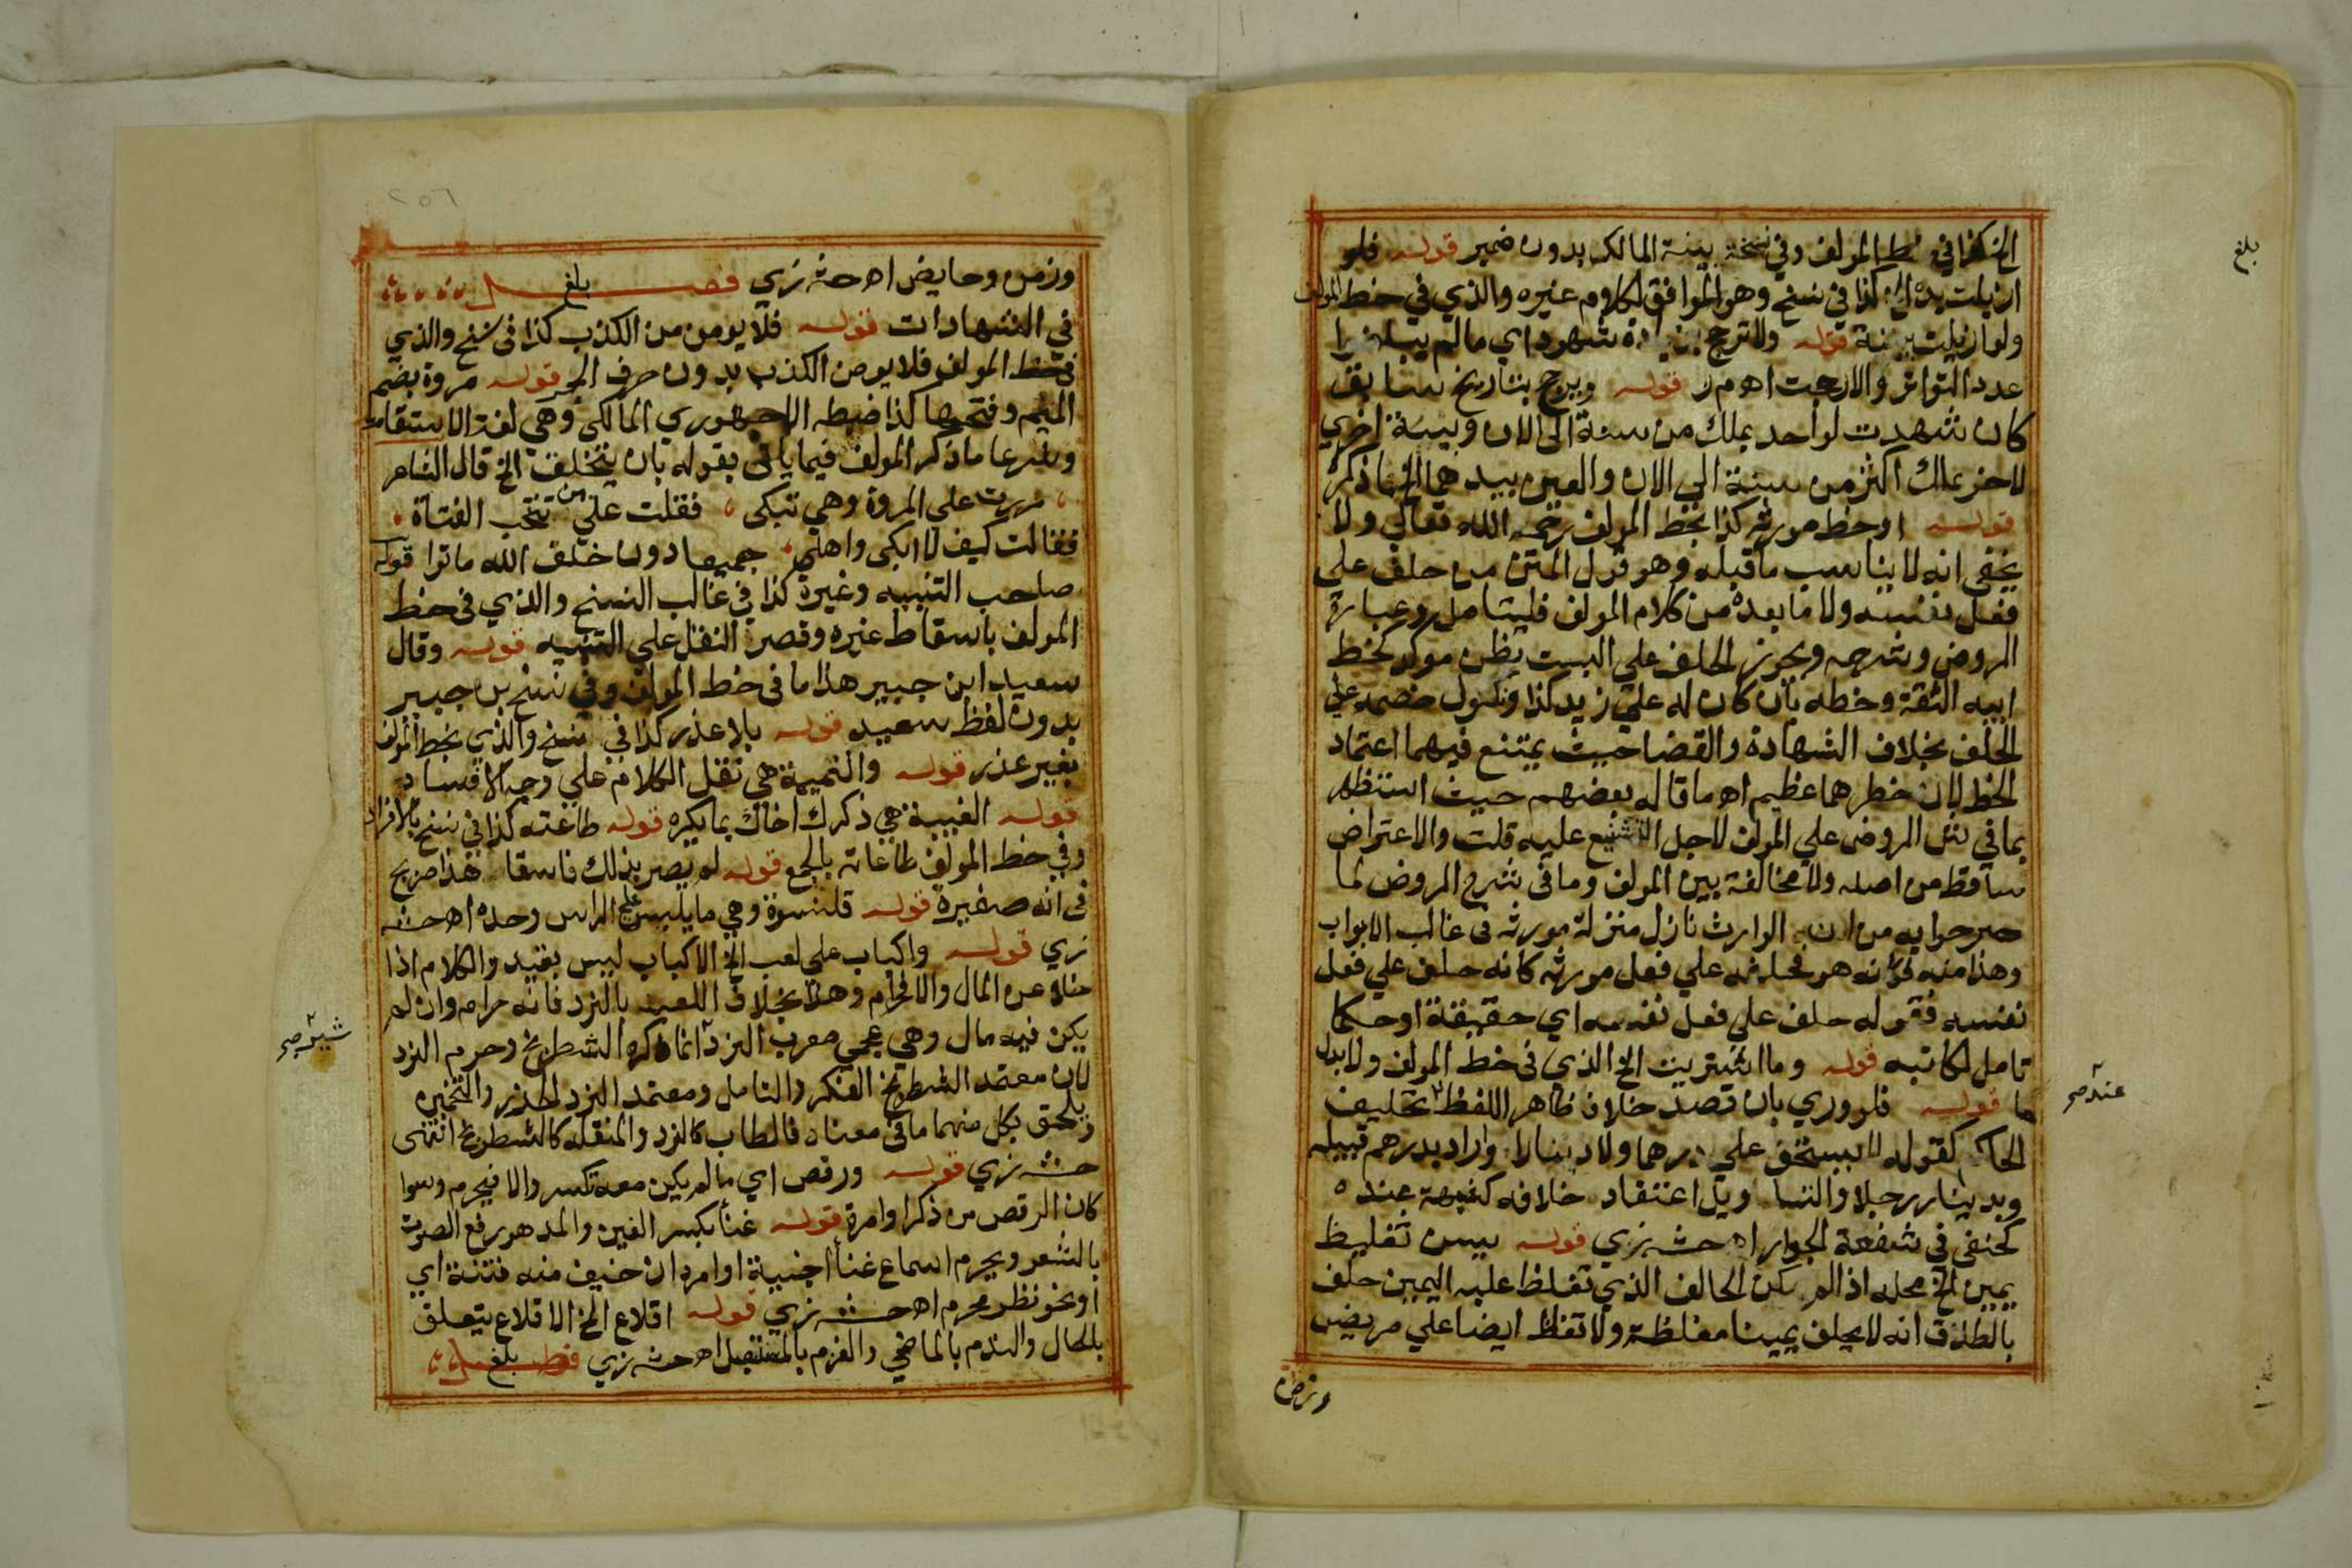 بلغ
الخ كذا في خط المولف وفي نسخة بينة المالك بدون ضمير قوله فلو
ازيلت يده الخ كذا في نسخ وهو الموافق لكلام غيره والذي في خط المولف
ولو ازيلت ببينة قوله ولا ترجح بزيادة شهود اي ما لم يبلغوا
عدد التواتر والا رجحت اه م ر قوله ويرجح بتاريخ سابق
كان شهدت لواحد بملك من سنة الى الان وبينة اخري
لاخر بملك اكثر من سنة الي الان والعين بيدهما الخ ما ذكر
قوله او خط مورثه كذا بخط المولف رحمه الله تعالي ولا
يخفى انه لا يناسب ما قبله وهو قول المتن من حلف على
فعل نفسه ولا ما بعده من كلام المولف فليتامل وعبارة
الروض وشرحه ويجوز الحلف علي البت بظن موكد كخط
ابيه الثقة وخطه بان كان له على زيد كذا ونكول خصمه علي
الحلف بخلاف الشهادة والقضا حيث يمتنع فيهما اعتماد
الخط لان خطرهما عظيم اه ما قاله بعضهم حيث استظهر
بما في شرح الروض علي المولف لاجل التشنيع عليه قلت والاعتراض
ساقط من اصله ولا مخالفة بين المولف وما في شرح الروض لما
صرحوا به من ان الوارث نازل منزلة مورثه في غالب الابواب
وهذا منه فكانه هو فحلفه علي فعل مورثه كانه حلف علي فعل
نفسه فقوله حلف علي فعل نفسه اي حقيقة او حكما
تامل لكاتبه قوله وما اشتريت الخ الذي في خط المولف ولا بدل
ما قوله فلو وري بان قصد خلاف ظاهر اللفظ تحليف
عند صح
الحاكم كقوله لا يستحق علي درهما ولا دينارا واراد بدرهم قبيله
وبدينار رجلا والتا ويل اعتقاد خلافه كشبهة عنده
كحنفي في شفعة الجوار اه حشـ زي قوله يسن تغليظ
يمين الخ محله اذا لم يكن الحالف الذي تغلظ عليه اليمين حلف
بالطلاق انه لا يحلف يمينا مغلظة ولا تغلظ ايضا علي مريض
وزمن
٢٥٦
وزمن وحايض اه حشـ زي فصـــل بلغ
في الشهادات قوله فلا يومن من الكذب كذا في نسخ والذي
في خط المولف فلا يومن الكذب بدون حرف الجر قوله مروة بضم
الميم وفتحها كذا ضبطه الاجهوري المالكي وهي لغة الاستقامة
وشرعا ما ذكر المولف فيما ياتي بقوله بان يتخلق الخ قال الشاعر
مررت على المروة وهي تبكي فقلت على من تنتحب الفتاة
فقالت كيف لا ابكي واهلي جميعا دون خلق الله ماتوا قوله
صاحب التنبيه وغيره كذا في غالب النسخ والذي في خط
المولف باسقاط غيره وقصر النقل علي التنبيه قوله وقال
سعيد ابن جبير هذا ما في خط المولف وفي نسخ بن جبير
بدون لفظ سعيد قوله بلا عذر كذا في نسخ والذي بخط المولف
بغير عذر قوله والنميمة هي نقل الكلام علي وجه الافساد
قوله الغيبة هي ذكرك اخاك بما يكره قوله طاعته كذا في نسخ بالافراد
وفي خط المولف طاعاته بالجمع قوله لم يصر بذلك فاسقا هذا صريح
في انه صغيرة قوله قلنسوة وهي ما يلبس على الراس وحده اه حشـ
زي قوله واكباب على لعب الخ الاكباب ليس بقيد والكلام اذا
خلا عن المال والا فحرام وهذا بخلاف اللعب بالنرد فانه حرام وان لم
يكن فيه مال وهي عجمي معرب النرد انما كره الشطرنج وحرم النرد
شير صح
لان معتمد الشطرنج الفكر والتامل ومعتمد النرد الحذر والتخمين
ويلحق بكل منهما ما في معناه فالطاب كالنرد والمنقلة كالشطرنج انتهى
حشـ زي قوله ورقص اي ما لم يكن معه تكسر والا فيحرم وسوا
كان الرقص من ذكر او امرة قوله غنا بكسر الغين والمد هو رفع الصوت
بالشعر ويحرم اسماع غنا اجنبية او امرد ان خيف منه فتنة اي
او نحو نظر محرم اه حشـ زي قوله اقلاع الخ الاقلاع يتعلق
بالحال والندم بالماضي والعزم بالمستقبل اه حشـ زي فصـــل بلغ